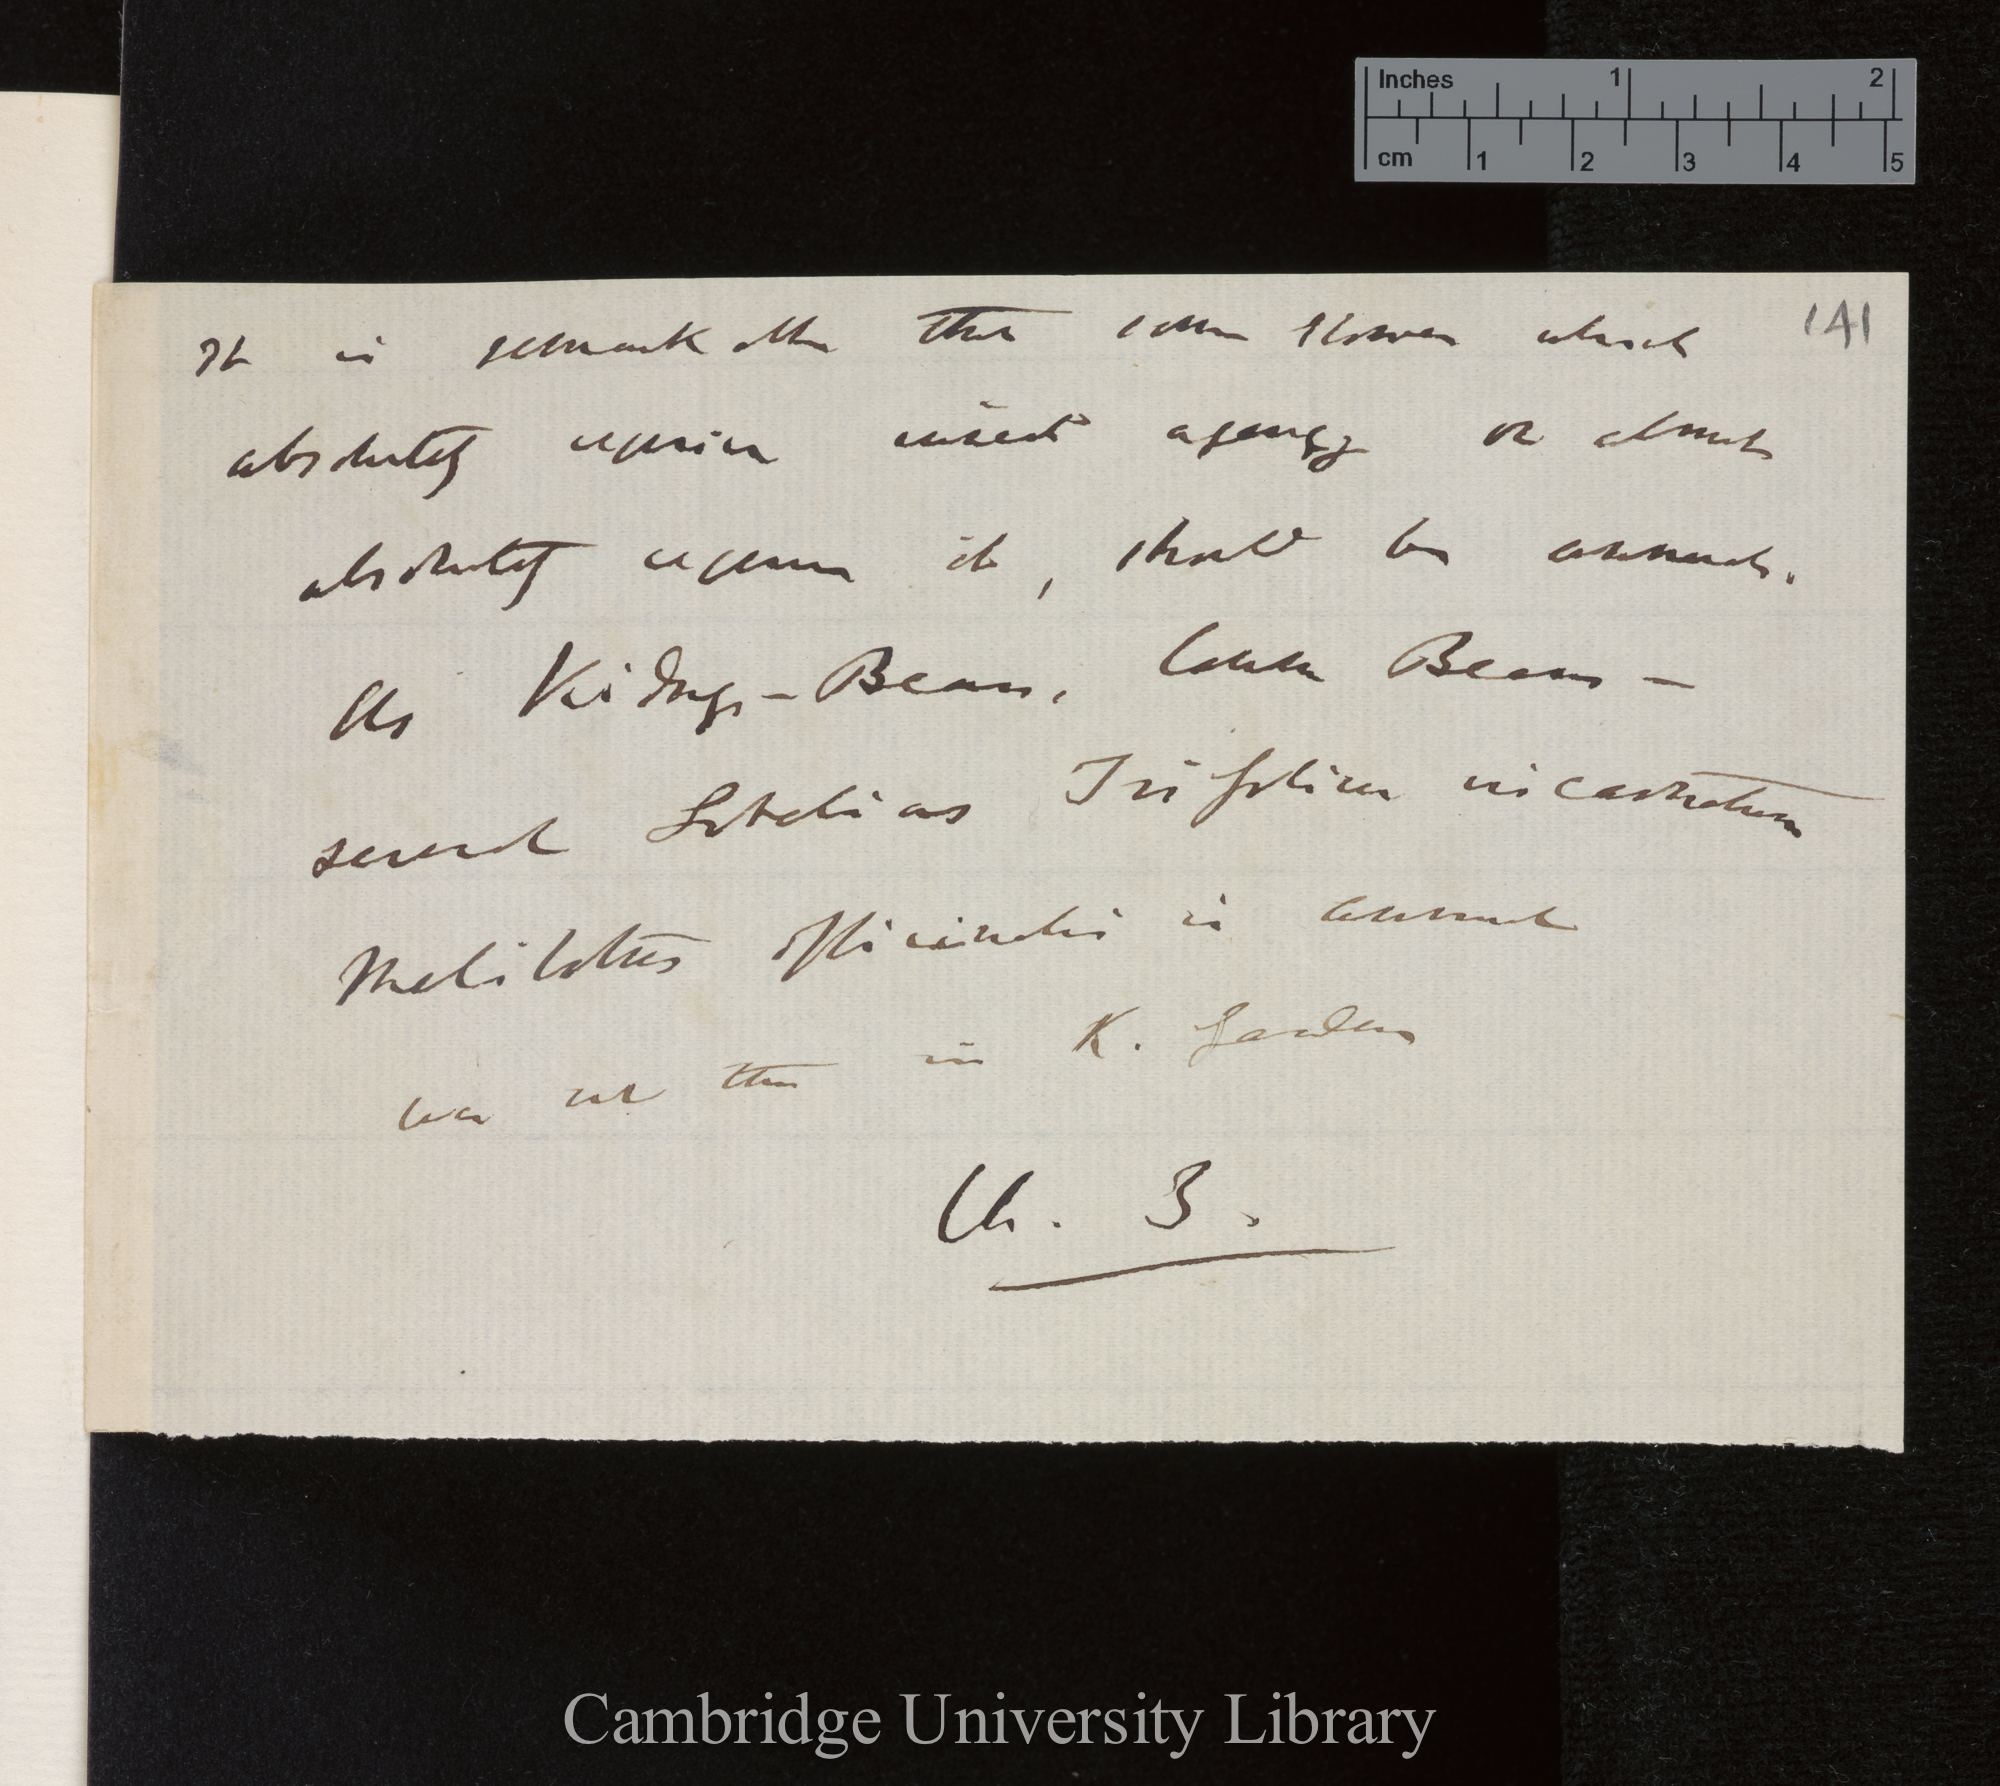 Inches 1 2
cm 1 2 3 4 5
141
It is remarkable that some flowers which
absolutely require insect agency or almost
absolutely require it, should be annuals.
As Kidney-Beans, Common Beans —
several Lobelias Trifolium incarnatum
Melilotus officinalis is annual
was not this in K. Gardens
Ch. 3.
Cambridge University Library